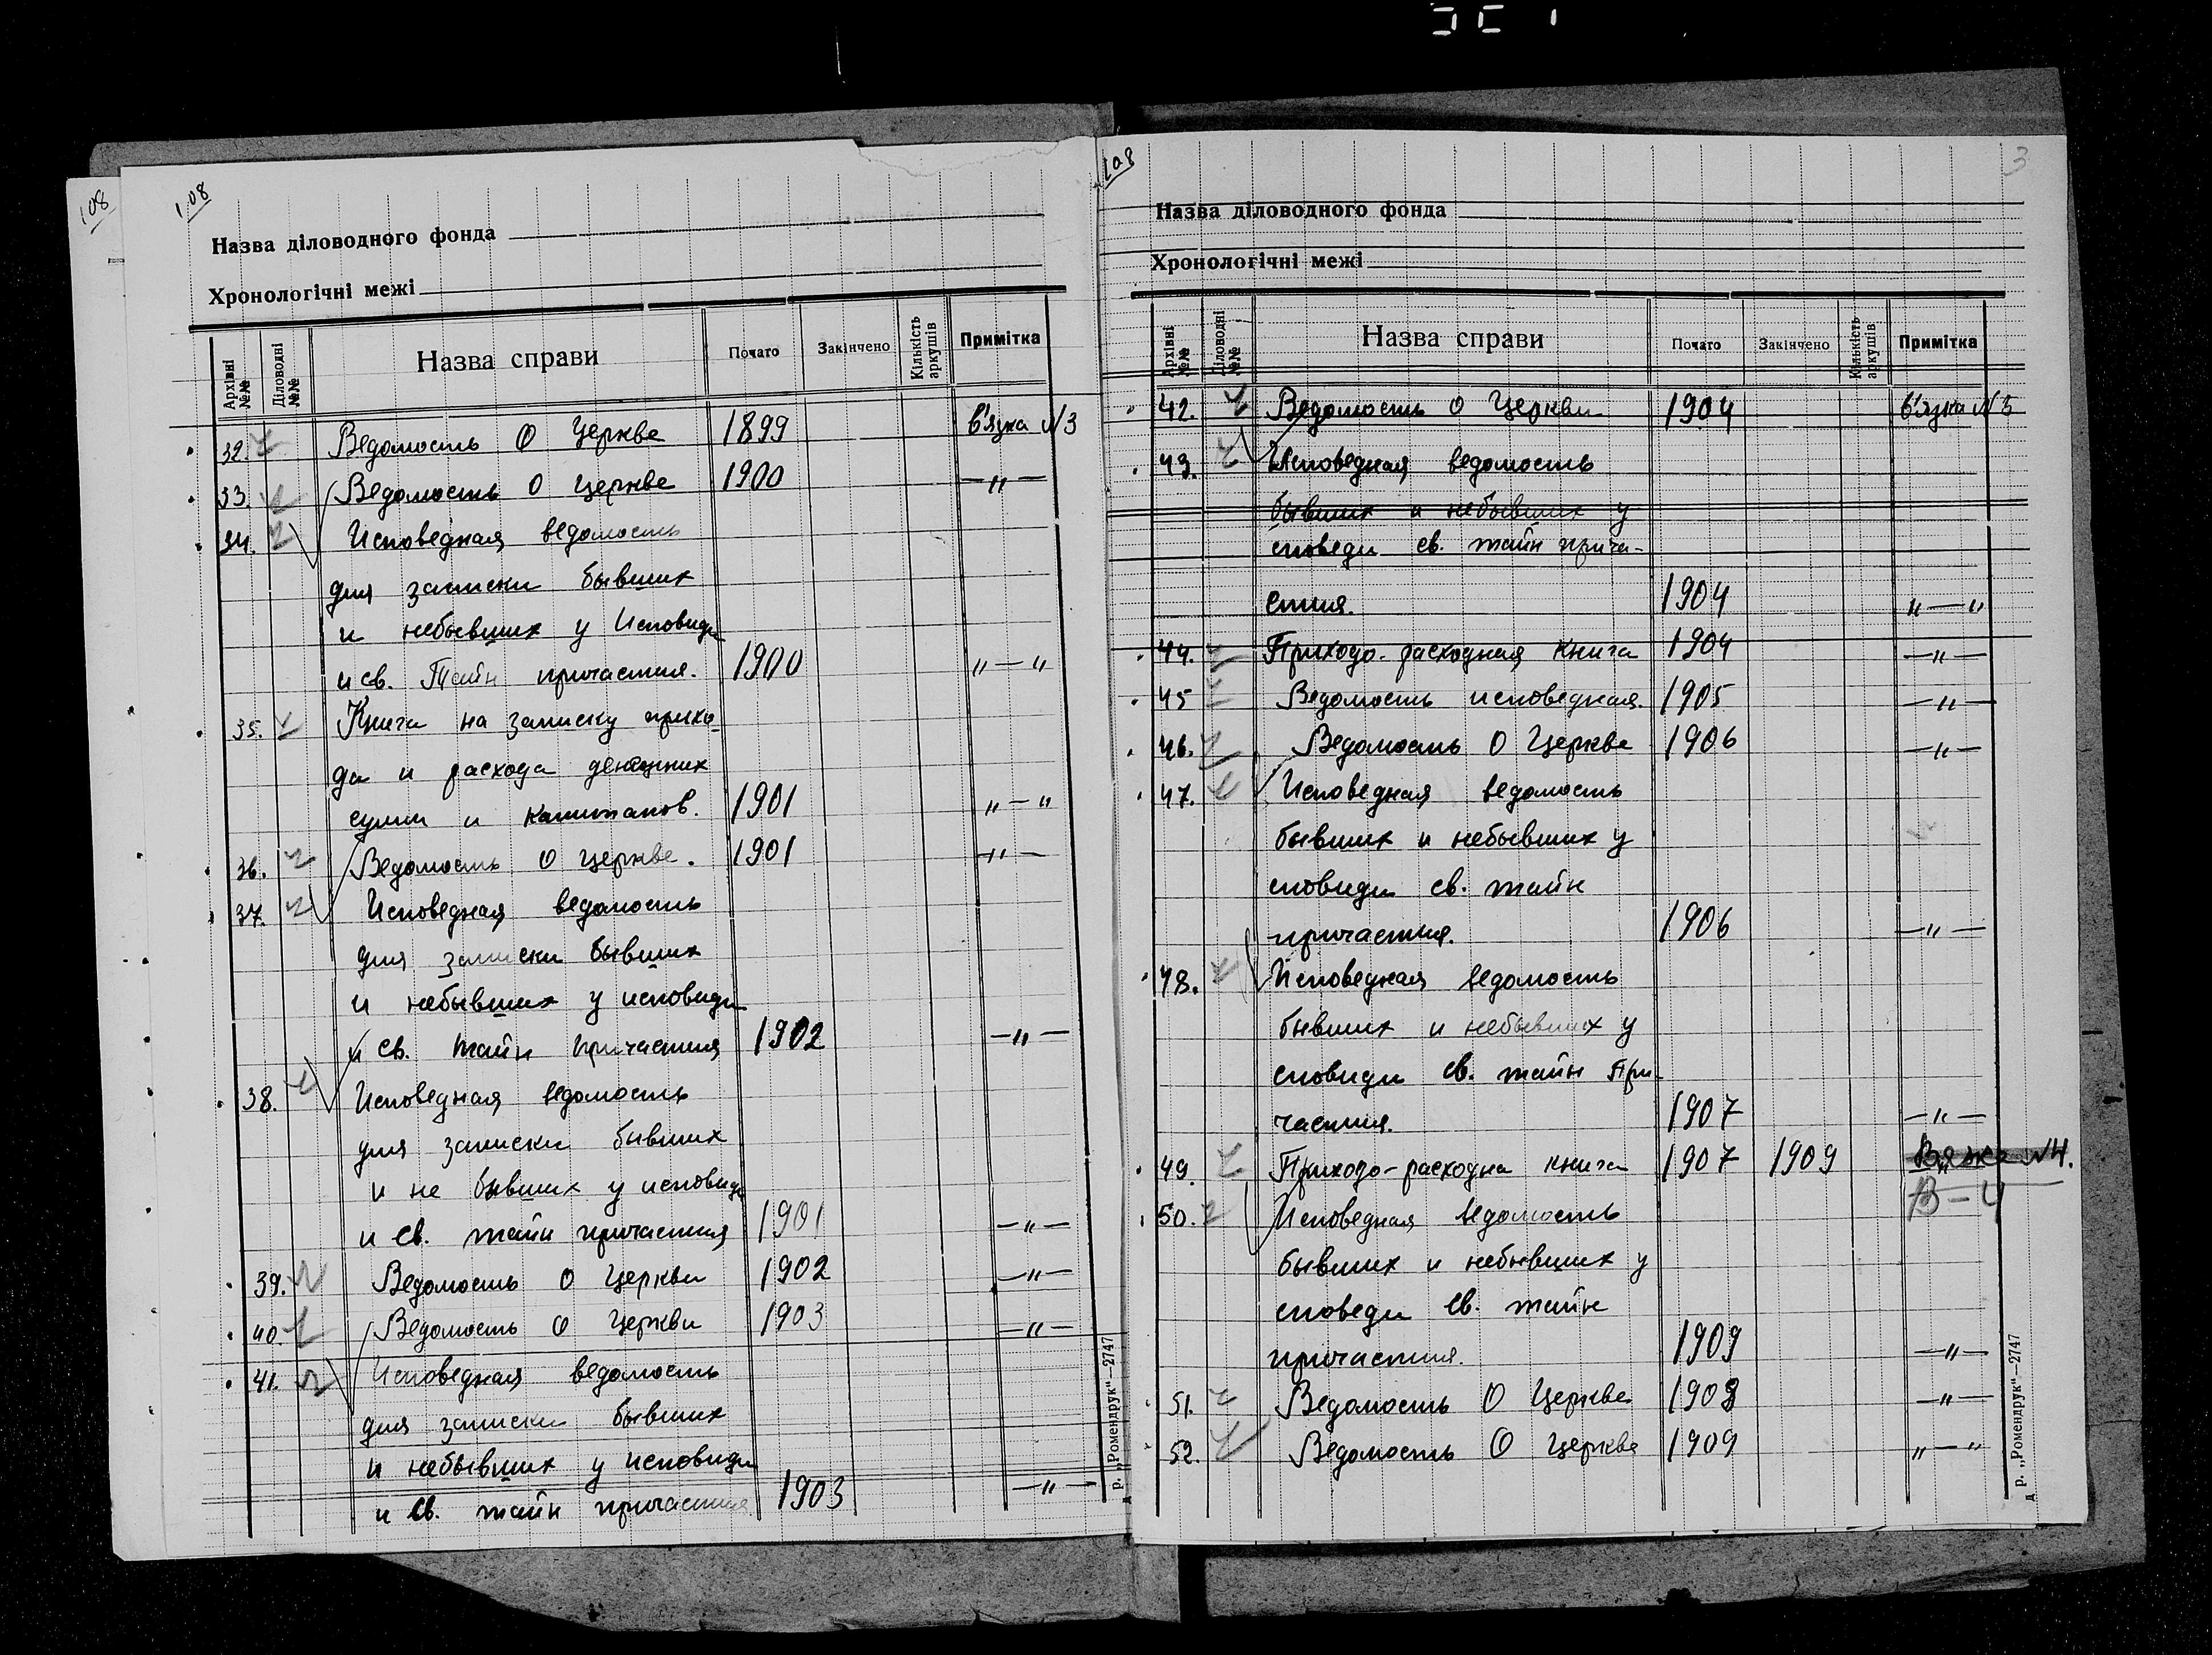 108
108
Назва діловодного фонда
Хронологічні межі
Архівні №№ Діловодні №№ Назва справи Почато Закінчено Кількість аркушів Примітка
32. Ведомость О Церкве 1899 в'язка №3
33. Ведомость О церкве 1900 —"—
34. Исповедная ведомость
для записки бывших
и небывших у Исповиди
и св. Тайн причастия. 1900 "—"
35. Книга на записку прихо-
да и расхода денежних
сумм и капиталов. 1901 "—"
36. Ведомость О церкве. 1901 —"—
37. Исповедная ведомость
для записки бывших
и небывших у исповиди
и св. тайн причастия 1902 —"—
38. Исповедная ведомость
для записки бывших
и не бывших у исповиди
и св. тайн причастия 1901 —"—
39. Ведомость О Церкви 1902 —"—
40. Ведомость О Церкви 1903 —"—
41. Исповедная ведомость
для записки бывших
и небывших у исповиди
и св. тайн причастия 1903 —"—
д р. „Ромендрук“—2747
108
3
Назва діловодного фонда
Хронологічні межі
Архівні №№ Діловодні №№ Назва справи Почато Закінчено Кількість аркушів Примітка
42. Ведомость О Церкви 1904 в'язка №3
43. Исповедная ведомость
бывших и небывших у
споведи св. тайн прича-
стия. 1904 "—"
44. Приходо-расходная книга 1904 —"—
45 Ведомость исповедная. 1905 —"—
46. Ведомость О Церкве 1906 —"—
47. Исповедная ведомость
бывших и небывших у
сповиди св. тайн
причастия. 1906 —"—
48. Исповедная ведомость
бывших и небывших у
сповиди св. тайн При-
частия. 1907 —"—
49. Приходо-расходна книга 1907 1909 №4.
В-4
50. Исповедная ведомость
бывших и небывших у
споведи св. тайн
причастия. 1909 —"—
51. Ведомость О Церкве 1908 —"—
52. Ведомость О Церкве 1909 "—"
д р. „Ромендрук“—2747